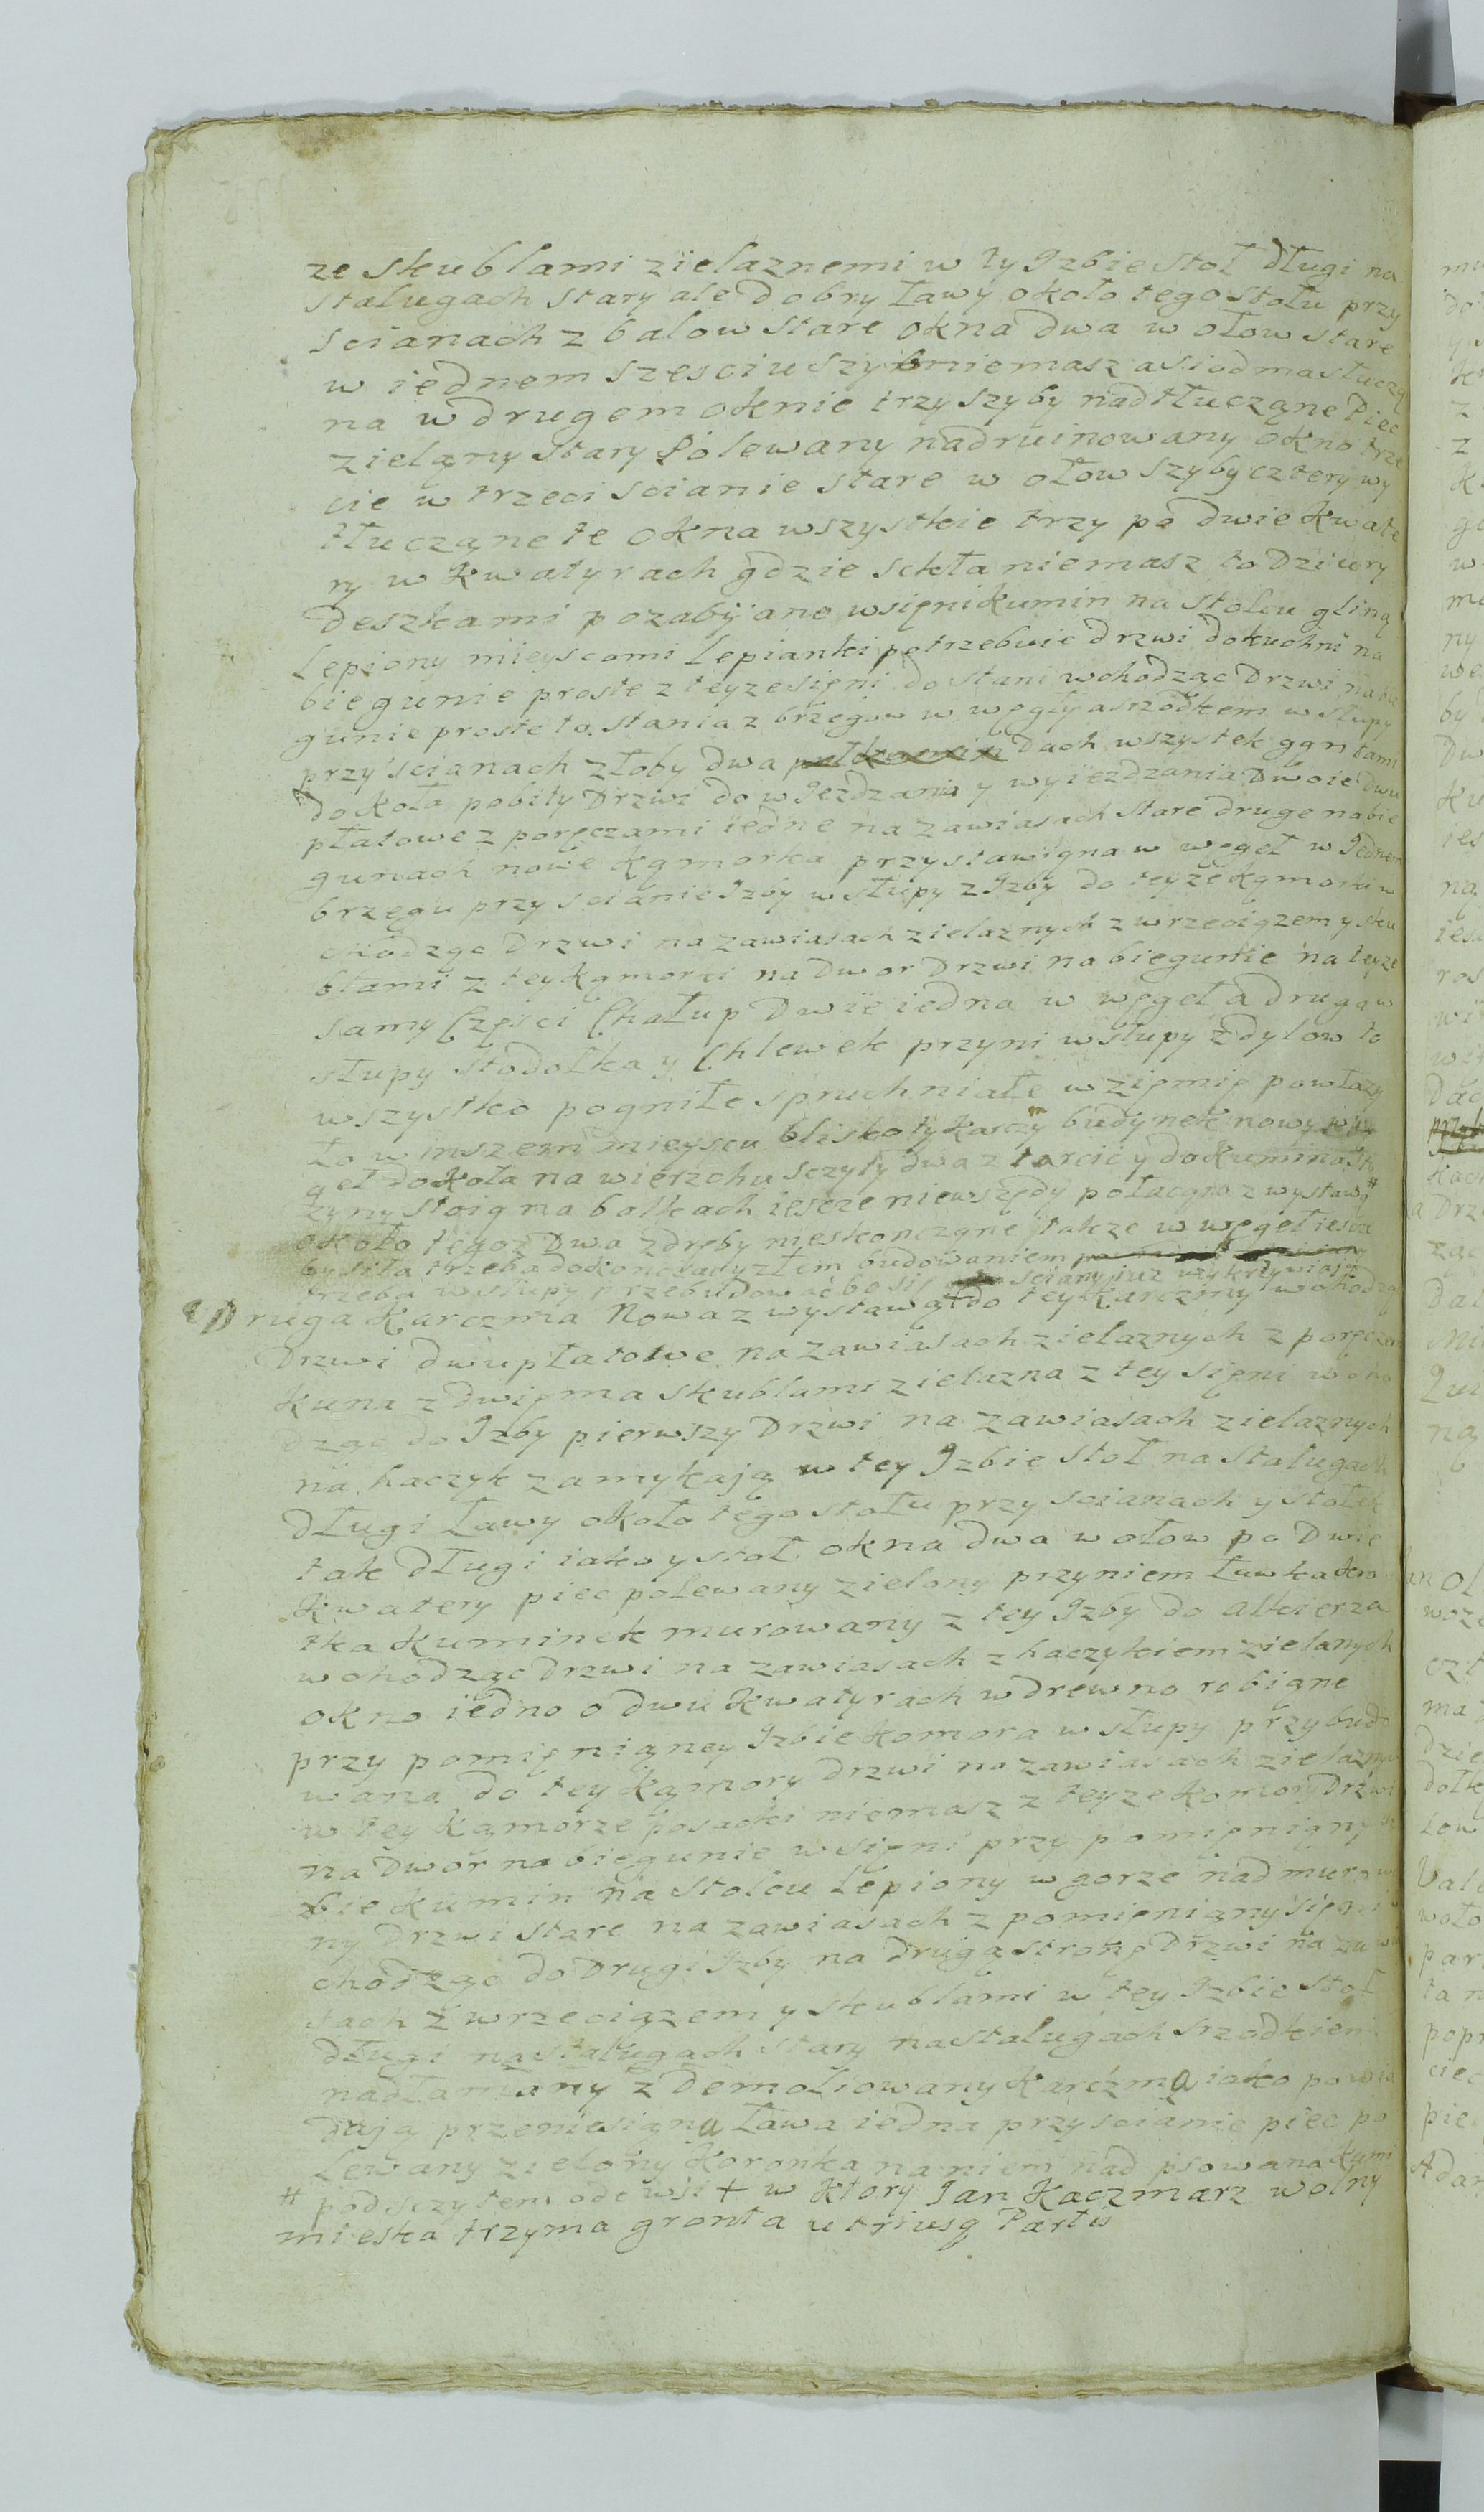 ze skublami zielaznemi w ty Izbie stoł długi na
stalugach stary ale dobry ławy około tego stołu przy
scianach z balow stare okna dwa w ołow stare
w iednem szesciu szyb niemasz a siodma stłuczą
na w drugem oknie trzy szyby nadtłucząne Piec
zieląny stary Polewany nadruinowany okno trze
cie w trzeci scianie stare w ołow szyby cztery wy
tłucząne te okna wszystkie trzy po dwie kwate
ry w kwatyrach gdzie sckła niemasz to dziury
deszkami pozabyiano w sięni kumin na stolcu gliną
Lepiony mieyscami Lepianki potrzebuie drzwi do kuchni na
biegunie proste z teyze sięni do stani wchodząc Drzwi na bie
gunie proste ta stania z brzegow w węgły a srzodkem w słupy
przy scianach złoby dwa Dach wszystek gąntami
do koła pobity Drzwi do wieżdzania y wyiezdzania Dwoie dwu
płatowe z poręczami iedne na zawiasach stare druge na bie
gunach nowe kąmorka przystawiąna w węgeł w Iednem
brzegu przy scianie Izby w słupy z Izby do teyże kąmorki w
chodząc Drzwi na zawiasach zielaznych z wrzeciązem y sku
blami z tey kąmorki na Dwor Drzwi na biegunie na teyze
samy Częsci Chałup Dwie iedna w węgeł a druga w
słupy stodołka y Chlewek przyni w słupy z dylow to
wszystko pogniłe spruchniałe w zięmię powłazy
ło w inszem mieyscu blisko ty karczm budynek nowy w wę
geł do koła na wierzchu sczyty dwa z tarcic y do kumina
zyny stoią na balkach iescze niewszędy połacąno z wystawą #
około tegoz Dwa zdręby nieskoncząne także w węgeł iescze
by siła trzeba do konczenia y złem budowaniem
trzeba w słupy przebudować bo się sciany juz wykrzywiaią
Druga karczma Nowa z wystawą + do tey karczmy wchodząc
Drzwi dwupłatowe na zawiasach zielaznych z poręczem
kuna z dwięma skublami zielazna z tey sięni wcho
dząc do Izby pierwszy Drzwi na zawiasach zielaznych
na haczyk zamykają w tey Izbie stoł na stalugach
długi Ławy około tego stołu przy scianach y stołek
tak długi iako y stoł okna dwa w ołow po Dwie
kwatery piec polewany zielony przyniem Ławka kro
tka kuminek murowany z tey Izby do alkierza
wchodząc drzwi na zawiasach z haczykiem zielanych
okno iedno o dwu kwatyrach w drewno robiąne
przy pomięniąney Izbie komora w słupy przybudo
wana do tey kąmory drzwi na zawiasach zielaznych
w tey kąmorze posacki niemasz z teyze komory Drzwi
na Dwor na biegunie w sięni przy pomięniąny Iz
bie kumin na stolcu Lepiony w gorze nad murowa
ny Drzwi stare na zawiasach z pomięniąny sięni w
chodząc do Drugi Izby na drugą stronę Drzwi na zawia
sach z wrzeciązem y skublami w tey Izbie stoł
długi na stalugach stary na stalugach srzodkiem
nadłamany z Demoliowany karczma iako powia
dają przeniesiąna Ława iedna przy scianie piec po
Lewany zielony koronka na niem nad psowana kumi
# pod sczytem ode wsi + w ktory Jan Kaczmarz wolny
mieska trzyma gronta utriusq Partis